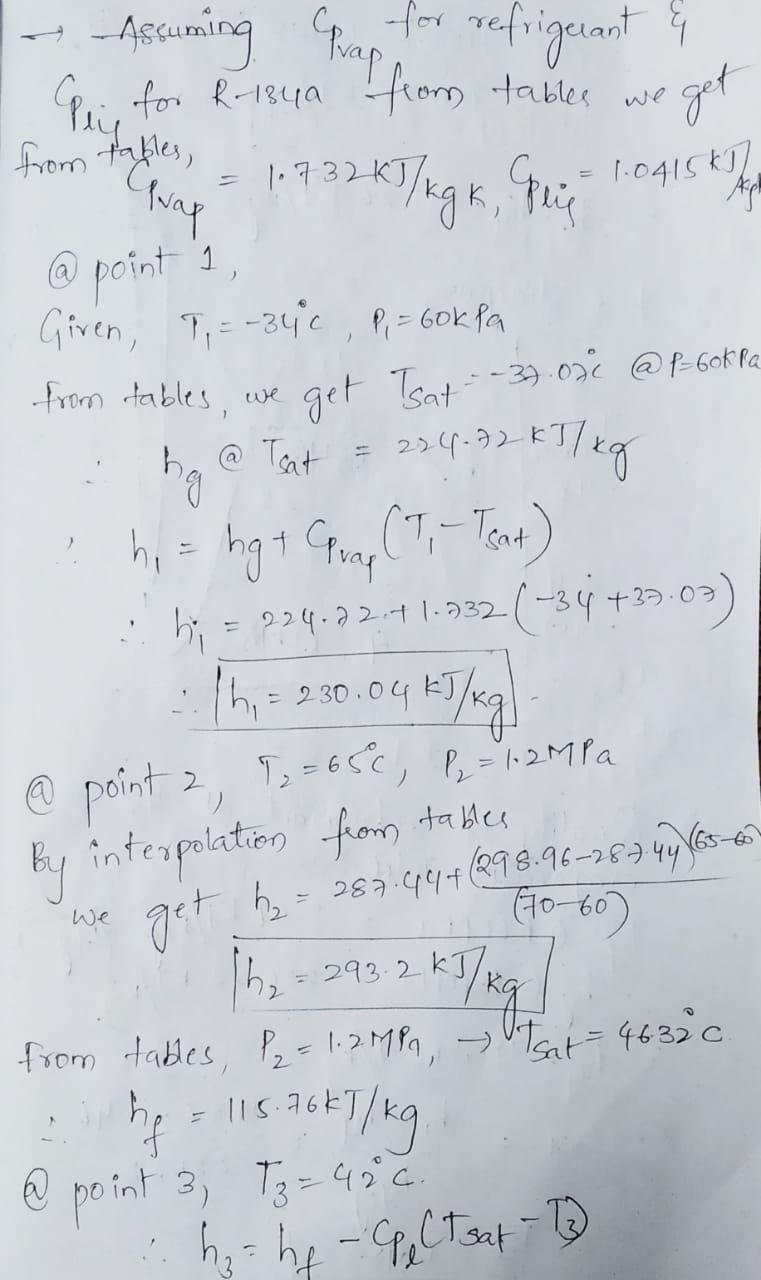 → Assuming Cp vap for refrigerant &
Cp liq for R-134a from tables we get
from tables,
Cp vap = 1.732 kJ/kg K, Cp liq = 1.0415 kJ/kgK
@ point 1,
Given, T₁ = -34°C, P₁ = 60kPa
from tables, we get Tsat = -37.07°C @ P=60kPa
∴ hg @ Tsat = 224.72 kJ/kg
∴ h₁ = hg + Cp vap (T₁ - Tsat)
∴ h₁ = 224.72 + 1.732 (-34 + 37.07)
∴ h₁ = 230.04 kJ/kg
@ point 2, T₂ = 65°C, P₂ = 1.2MPa
By interpolation from tables
we get h₂ = 287.44 + (298.96-287.44)(65-60)/(70-60)
h₂ = 293.2 kJ/kg
from tables, P₂ = 1.2MPa, → Tsat = 46.32°C
∴ hf = 115.76 kJ/kg
@ point 3, T₃ = 42°C.
∴ h₃ = hf - Cpl (Tsat - T₃)